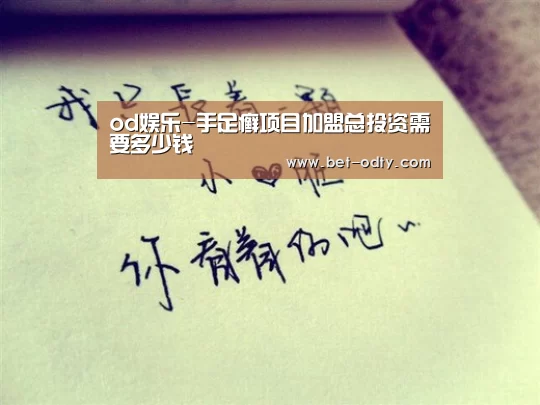 我只長着一顆
od娱乐-手足癣项目加盟总投资需
要多少钱
www.bet-odty.com
小
你看着伤吧~